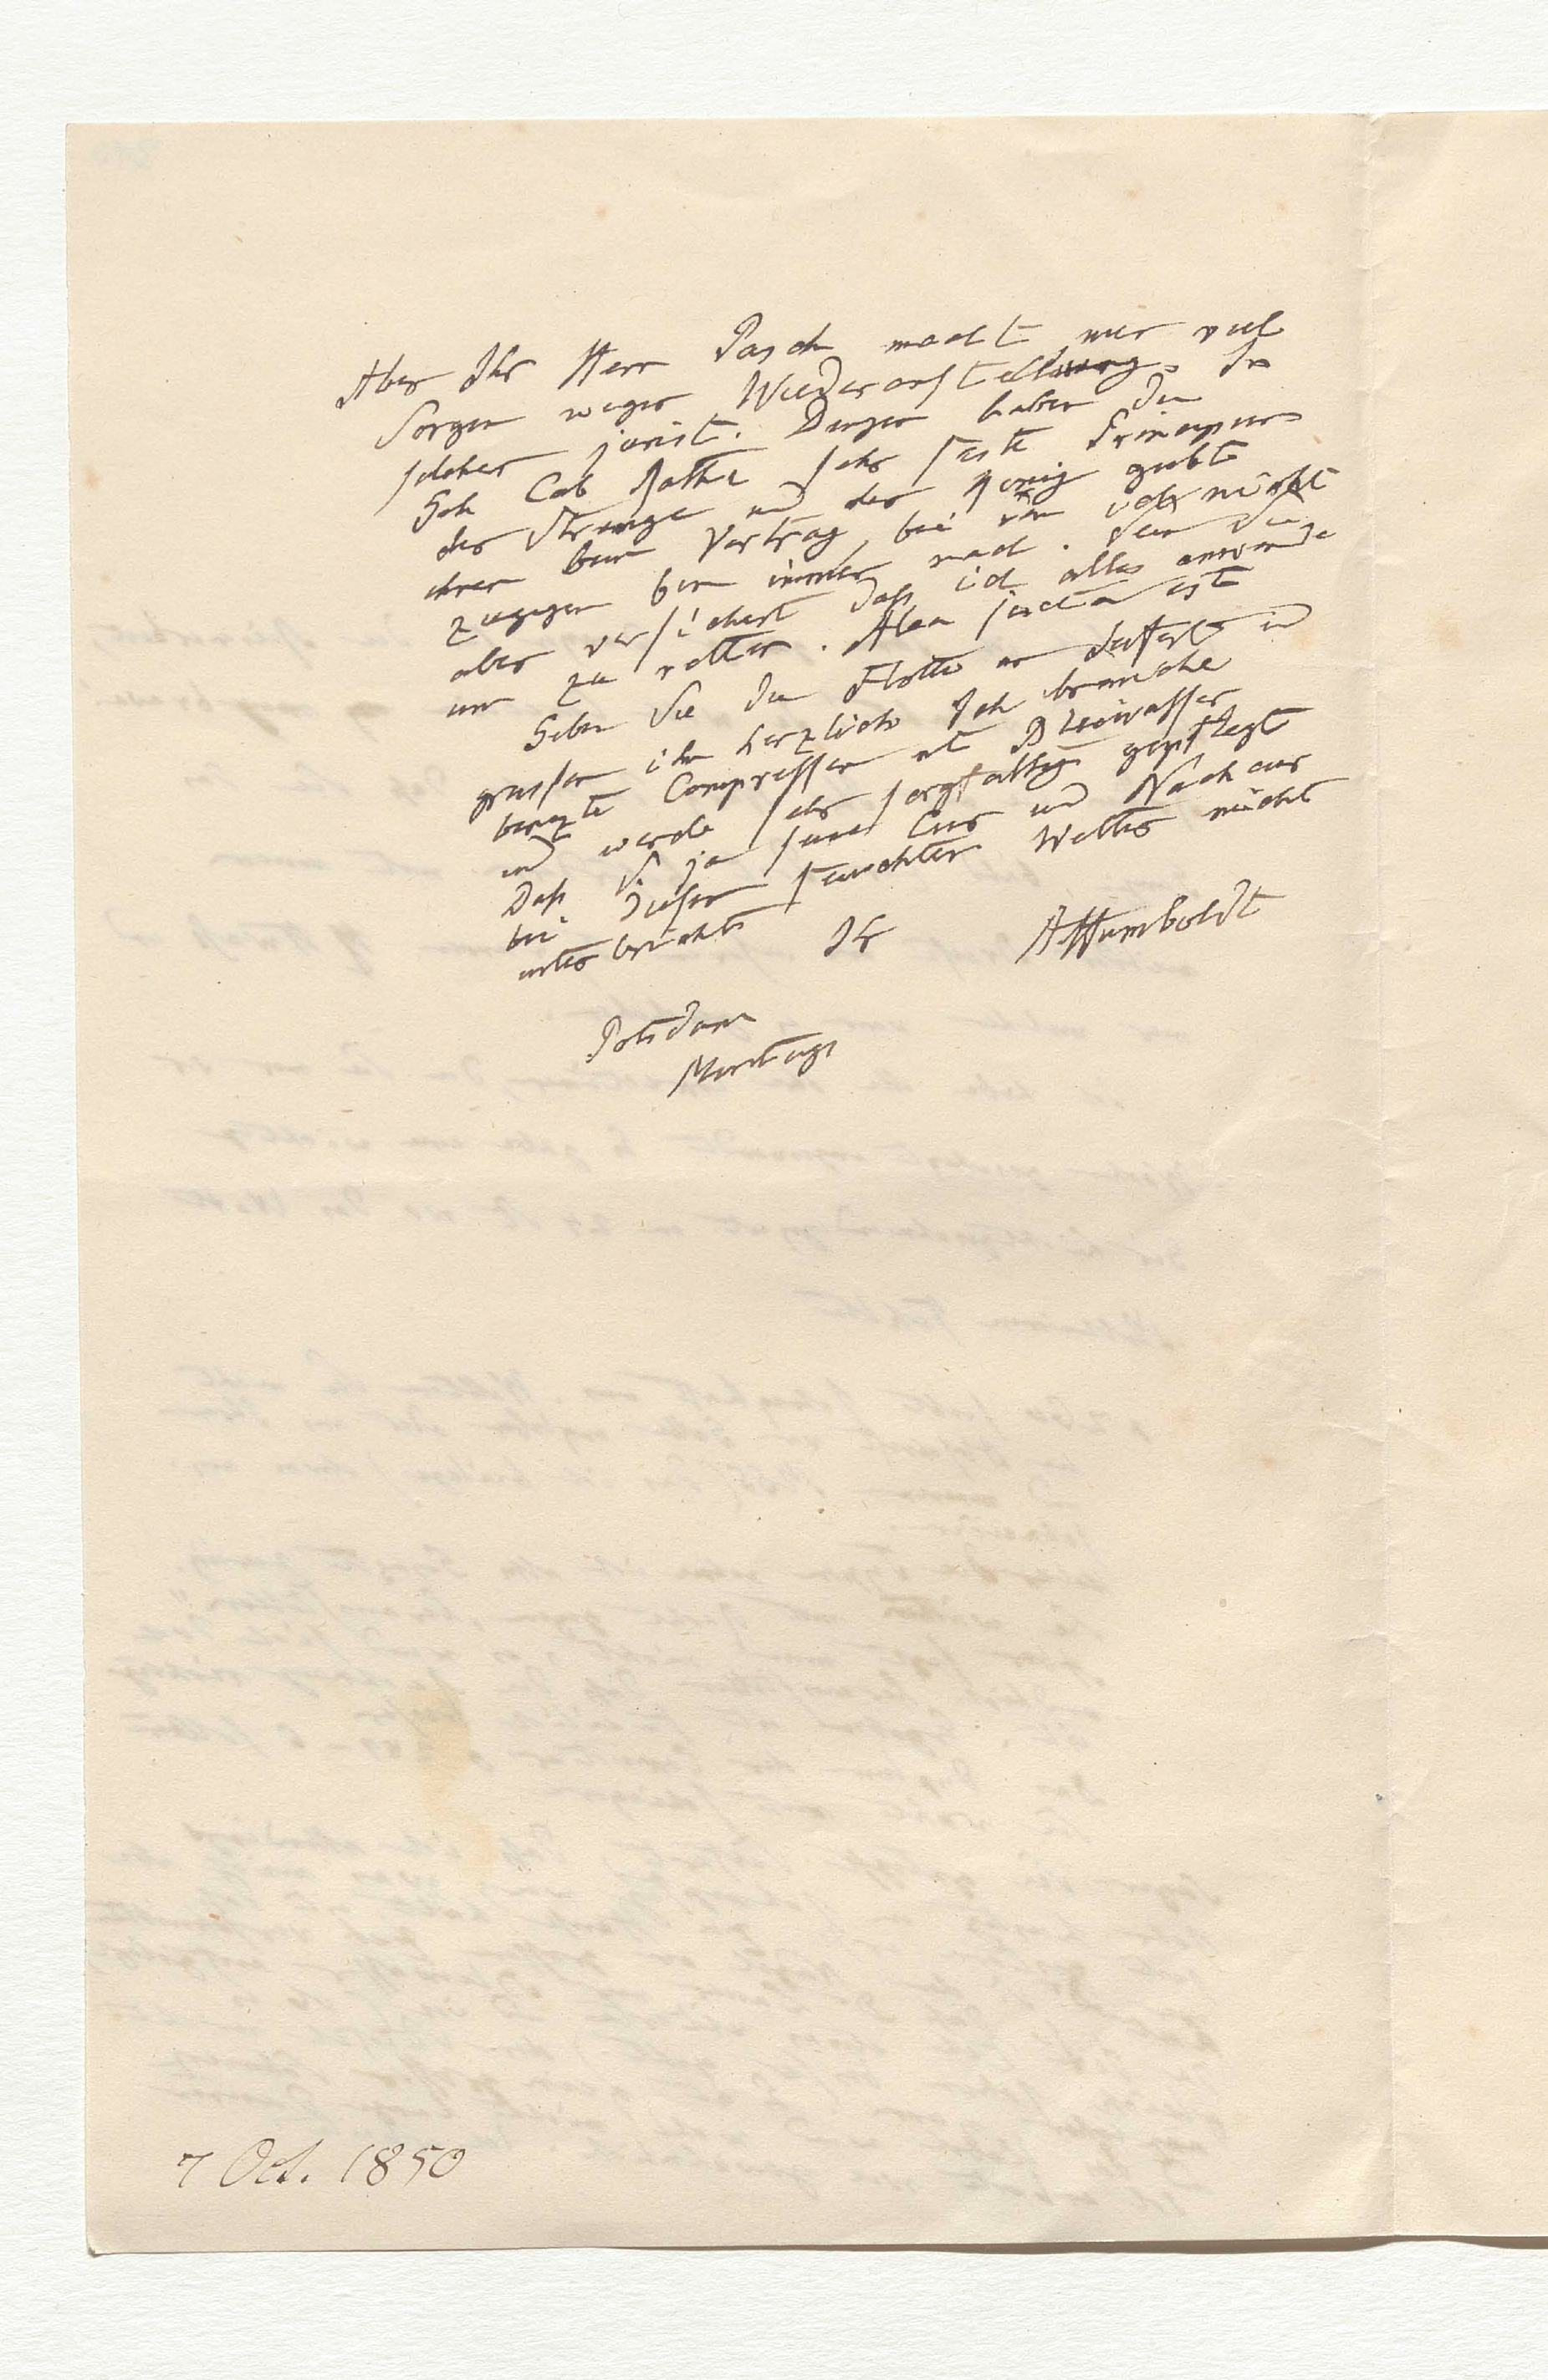 Aber Ihr Herr Pasch macht mir viel
Sorgen wegen Wiederanstellung. In
solchen jurist. Dingen haben die
Geh Cab Räthe sehr feste Principien
der Strenge und der König giebt
ihnen beim Vortrag, bei dem ich nicht
zugegen bin immer nach. Sein Sie
aber versichert daß ich alles anwende
um zu retten. Alea jacta est
Geben Sie die
grüssen ihn herzlich Ich brauche
benezte Compressen mit Bleiwasser
und werde sehr sorgfältig gepflegt
Daß S. ja seine Cur und Nachcur
bei dieser feuchten Wetter nicht
unterbricht Ihr AHumboldt
Potsdam
Montags
7 Oct. 1850